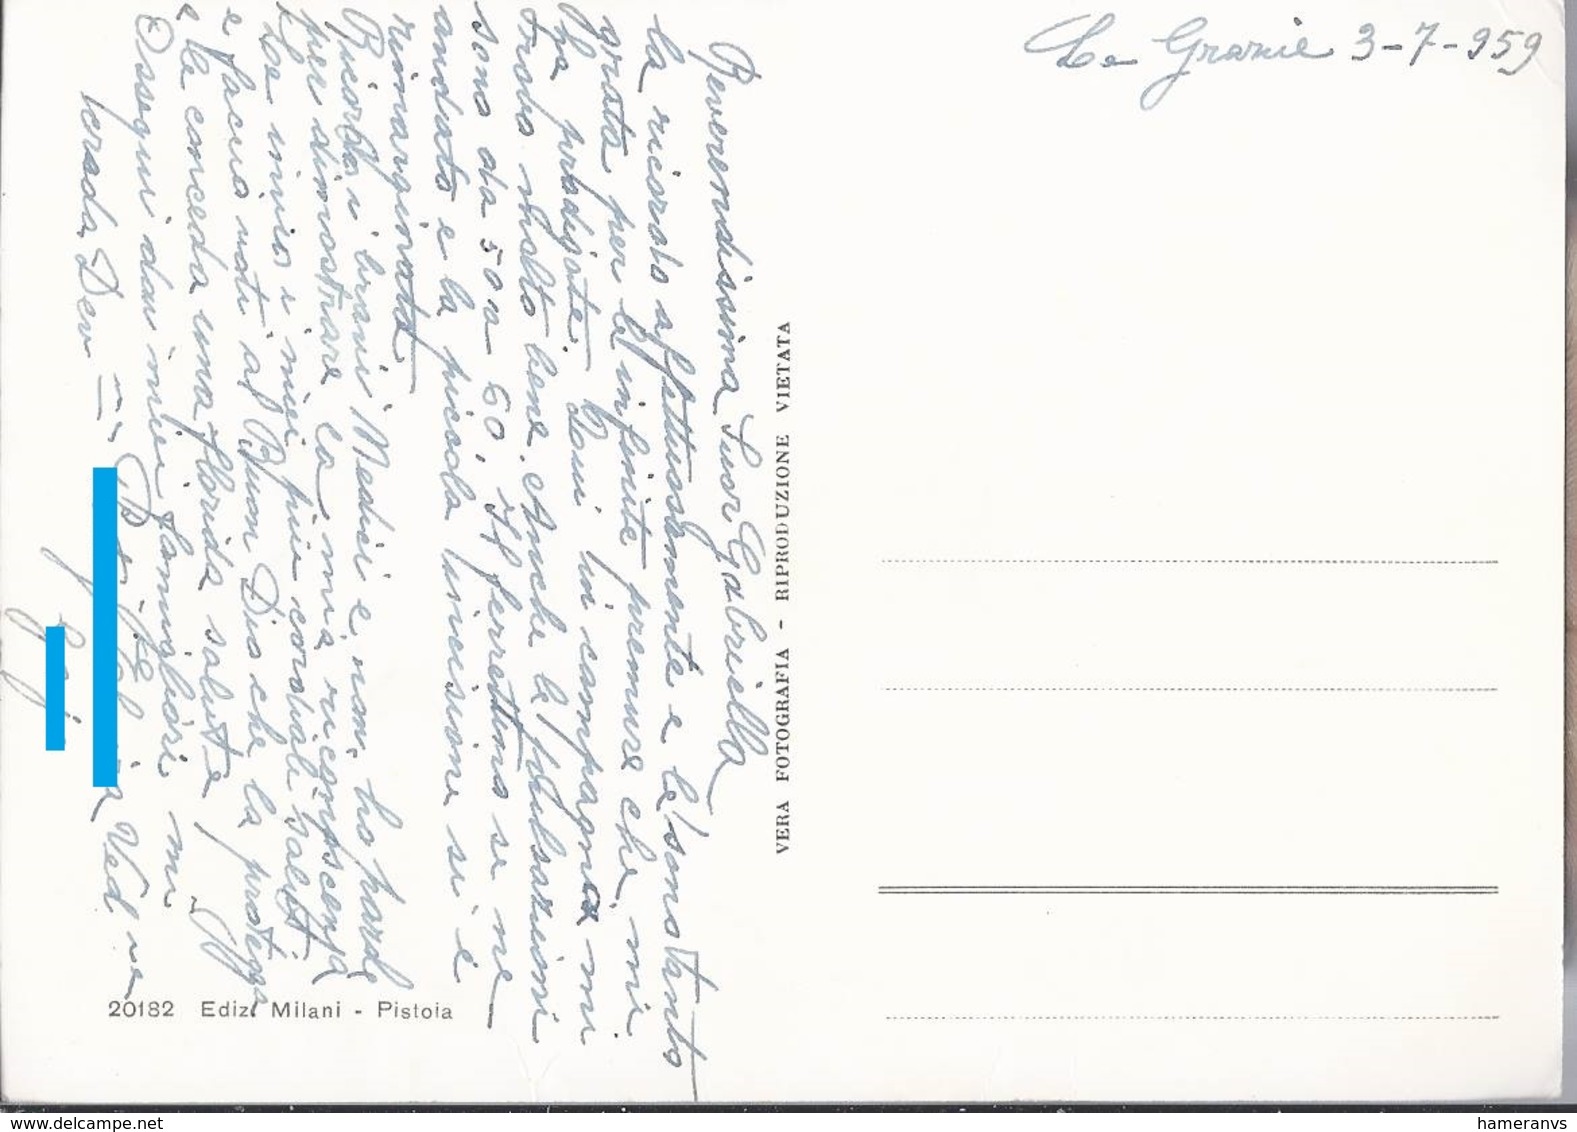 Le Grazie 3-7-959
Reverendissima Suor Gabriella
la ricordo affettuosamente e le sono tanto
grata per le infinite premure che mi
ha prodigate. Qui in campagna mi
trovo molto bene. Anche le pulsazioni
sono da 50 a 60, il ferrettino se ne
andato e la piccola incisione si è
rimarginata
Ricordo i bravi Medici e non ho parole
per dimostrare la mia riconoscenza
Le invio i miei più cordiali saluti
e faccio voti al Buon Dio che la protegga
e le conceda una florida salute,
Ossequi dai miei famigliari mi
creda Dev = Ved
VERA FOTOGRAFIA - RIPRODUZIONE VIETATA
20182 Ediz. Milani - Pistoia
delcampe.net
hameranvs